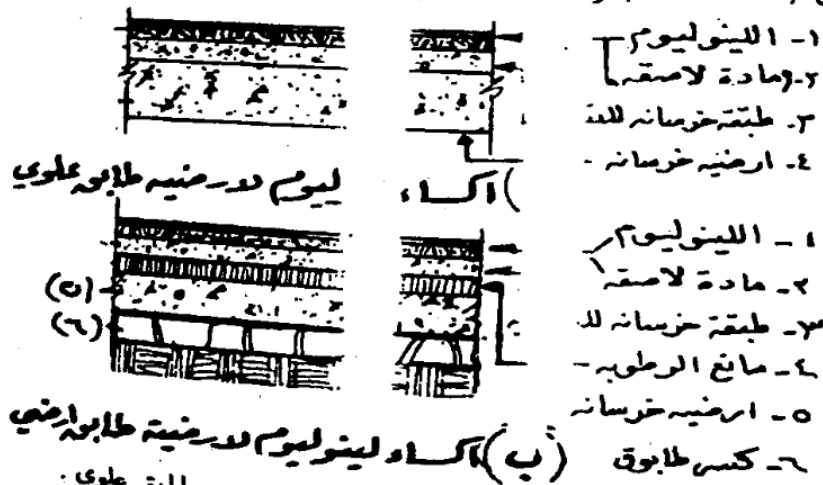 ١- اللينوليوم
٢- مادة لاصقه
٣- طبقة خرسانه
٤- ارضيه خرسانه -
) اكساء ليوم لارضيه طابق علوي
١- اللينوليوم
٢- مادة لاصقه
٣- طبقة خرسانه
٤- مانع الرطوبه -
٥- ارضيه خرسانه
٦- كسر طابوق
(٥)
(٦)
(ب) اكساء لينوليوم لارضية طابق ارضي
علوي .